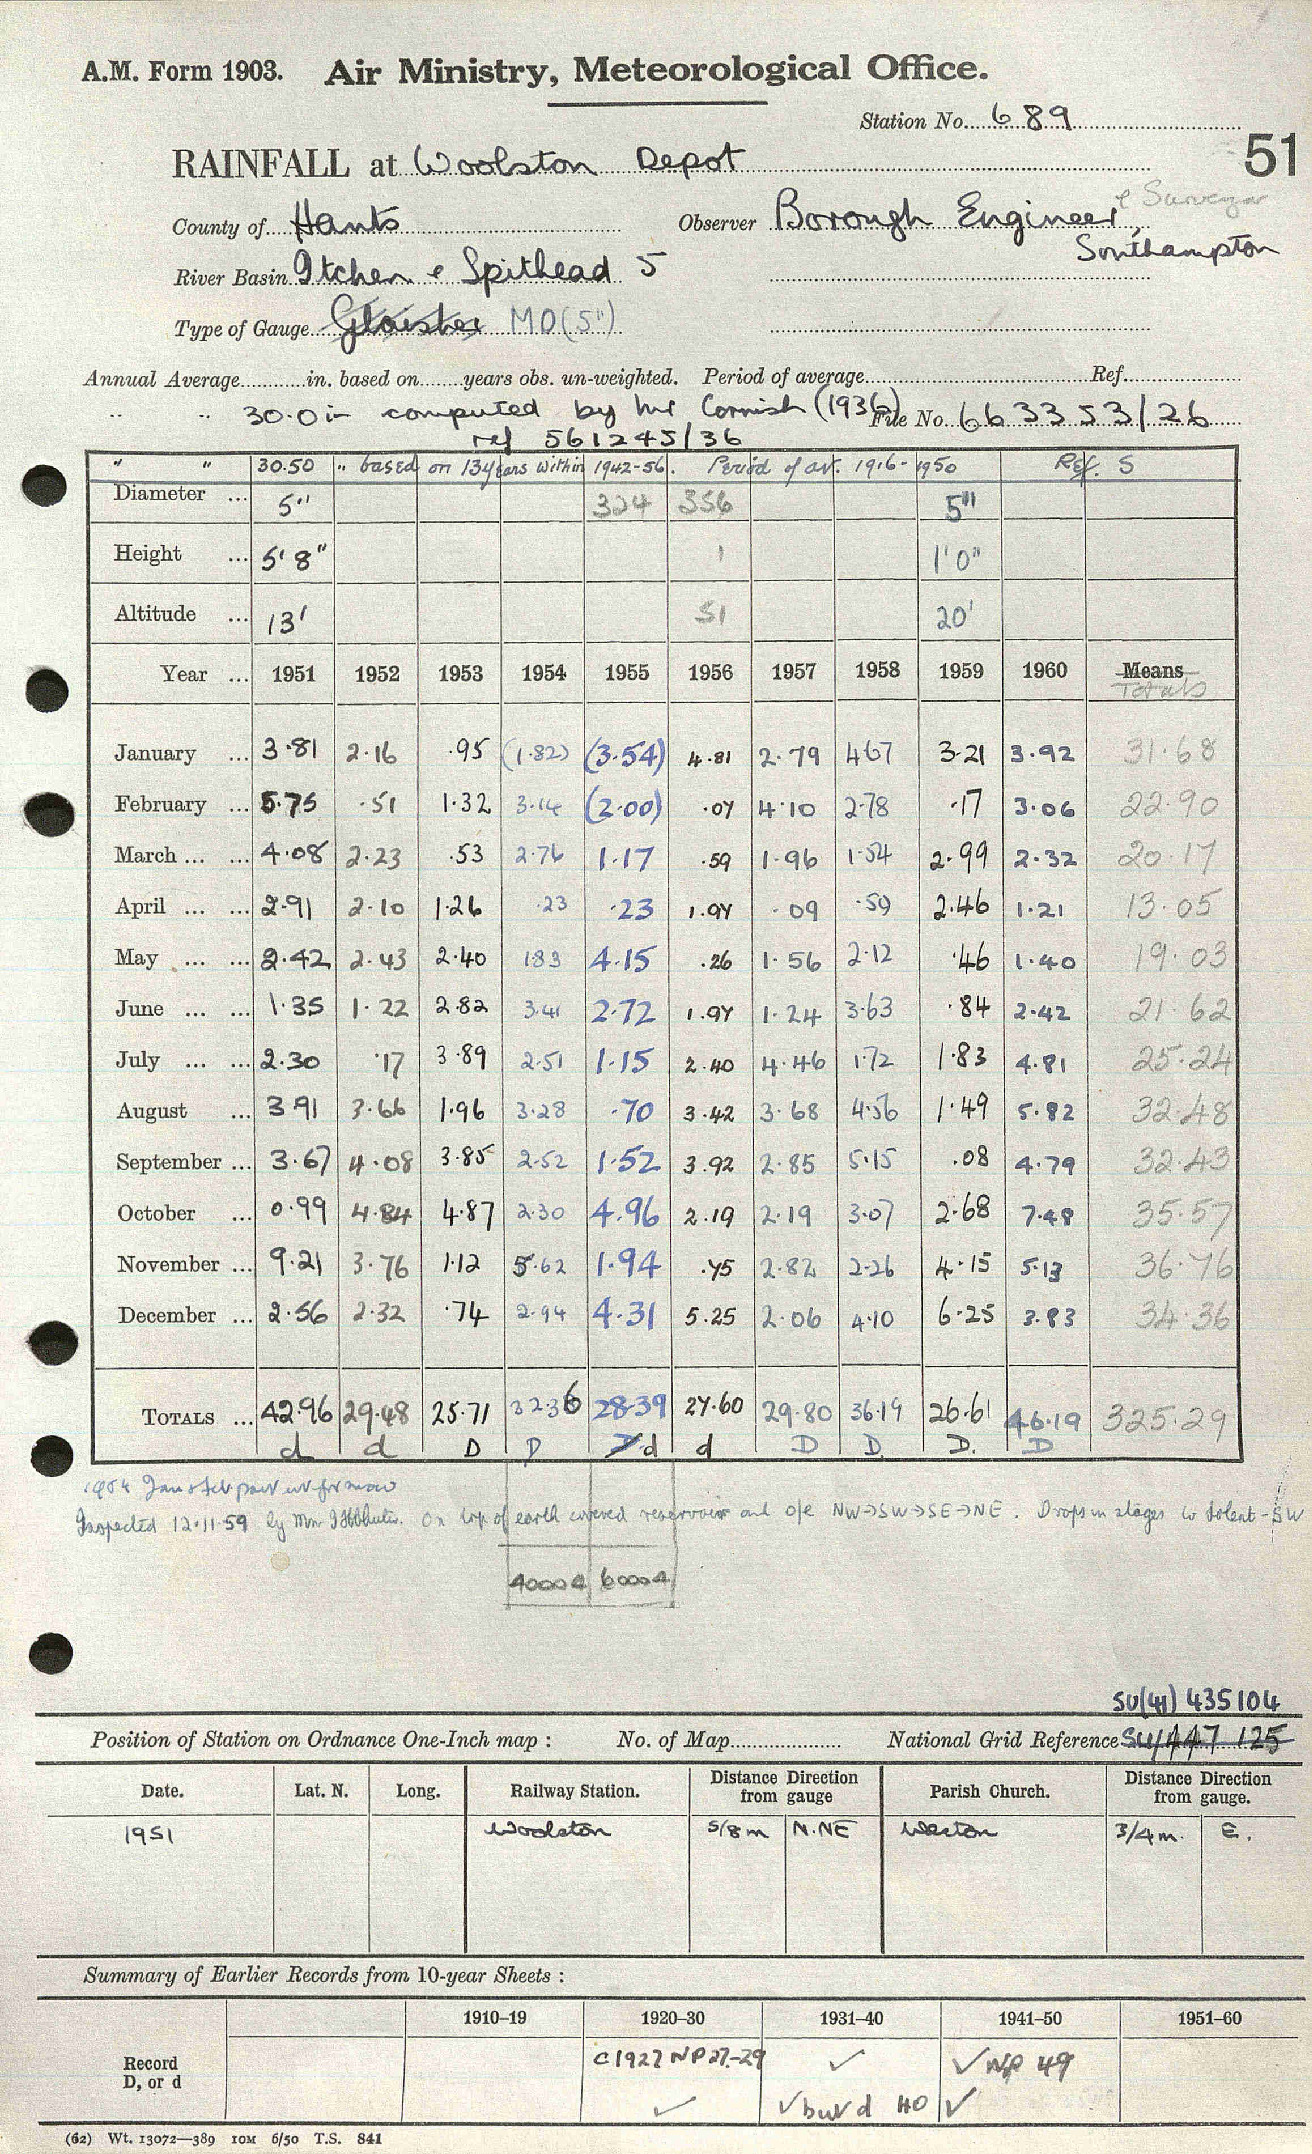 A.M. Form 1903. Air Ministry, Meteorological Office.
Station No. 689
51
RAINFALL at Woolston Depot
County of Hants Observer Borough Engineer & Surveyor,
Southampton
River Basin Itchen & Spithead 5
Type of Gauge Glaisher MO(5")
Annual Average in. based on years obs. un-weighted. Period of average Ref.
" " 30.0 in computed by Mr Cornish (1936) File No. 663353/26
ref 561245/36
" " 30.50 " based on 13 years within 1942-56. Period of av. 1916-1950 Ref. S
Diameter ... 5" 324 356 5"
Height ... 5'8" 1 1'0"
Altitude ... 13' 51 20'
Year ... 1951 1952 1953 1954 1955 1956 1957 1958 1959 1960 Means
Totals
January ... 3.81 2.16 .95 (1.82) (3.54) 4.81 2.79 4.67 3.21 3.92 31.68
February ... 5.75 .51 1.32 3.14 (2.00) .07 4.10 2.78 .17 3.06 22.90
March ... ... 4.08 2.23 .53 2.76 1.17 .59 1.96 1.54 2.99 2.32 20.17
April ... ... 2.91 2.10 1.26 .23 .23 1.97 .09 .59 2.46 1.21 13.05
May ... ... 2.42 2.43 2.40 1.83 4.15 .26 1.56 2.12 .46 1.40 19.03
June ... ... 1.35 1.22 2.82 3.41 2.72 1.97 1.24 3.63 .84 2.42 21.62
July ... ... 2.30 .17 3.89 2.51 1.15 2.40 4.46 1.72 1.83 4.81 25.24
August ... 3.91 3.66 1.96 3.28 .70 3.42 3.68 4.56 1.49 5.82 32.48
September ... 3.67 4.08 3.85 2.52 1.52 3.92 2.85 5.15 .08 4.79 32.43
October ... 0.99 4.84 4.87 2.30 4.96 2.19 2.19 3.07 2.68 7.48 35.57
November ... 9.21 3.76 1.12 5.62 1.94 .75 2.82 2.26 4.15 5.13 36.76
December ... 2.56 2.32 .74 2.94 4.31 5.25 2.06 4.10 6.25 3.83 34.36
TOTALS ... 42.96 29.48 25.71 32.36 28.39 27.60 29.80 36.19 26.61 46.19 325.29
d d D D D d d D D. D. D
1954 Jan & Feb
Inspected 12.11.59 by Mr On top of earth covered reservoir and o/e NW→SW→SE→NE. Drops in stages to Solent - SW
4000 6000
SU(41) 435104
Position of Station on Ordnance One-Inch map : No. of Map National Grid Reference SU/447 125
Date. Lat. N. Long. Railway Station. Distance from gauge Direction Parish Church. Distance from gauge. Direction
1951 Woolston 5/8 m N.NE Weston 3/4 m. E.
Summary of Earlier Records from 10-year Sheets :
1910–19 1920–30 1931–40 1941–50 1951–60
Record D, or d C1927 NP 27-29 ✓ ✓ NP 49
✓ ✓ but d 40 ✓
(62) Wt. 13072—389 10M 6/50 T.S. 841